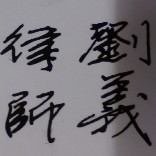 劉義
律師